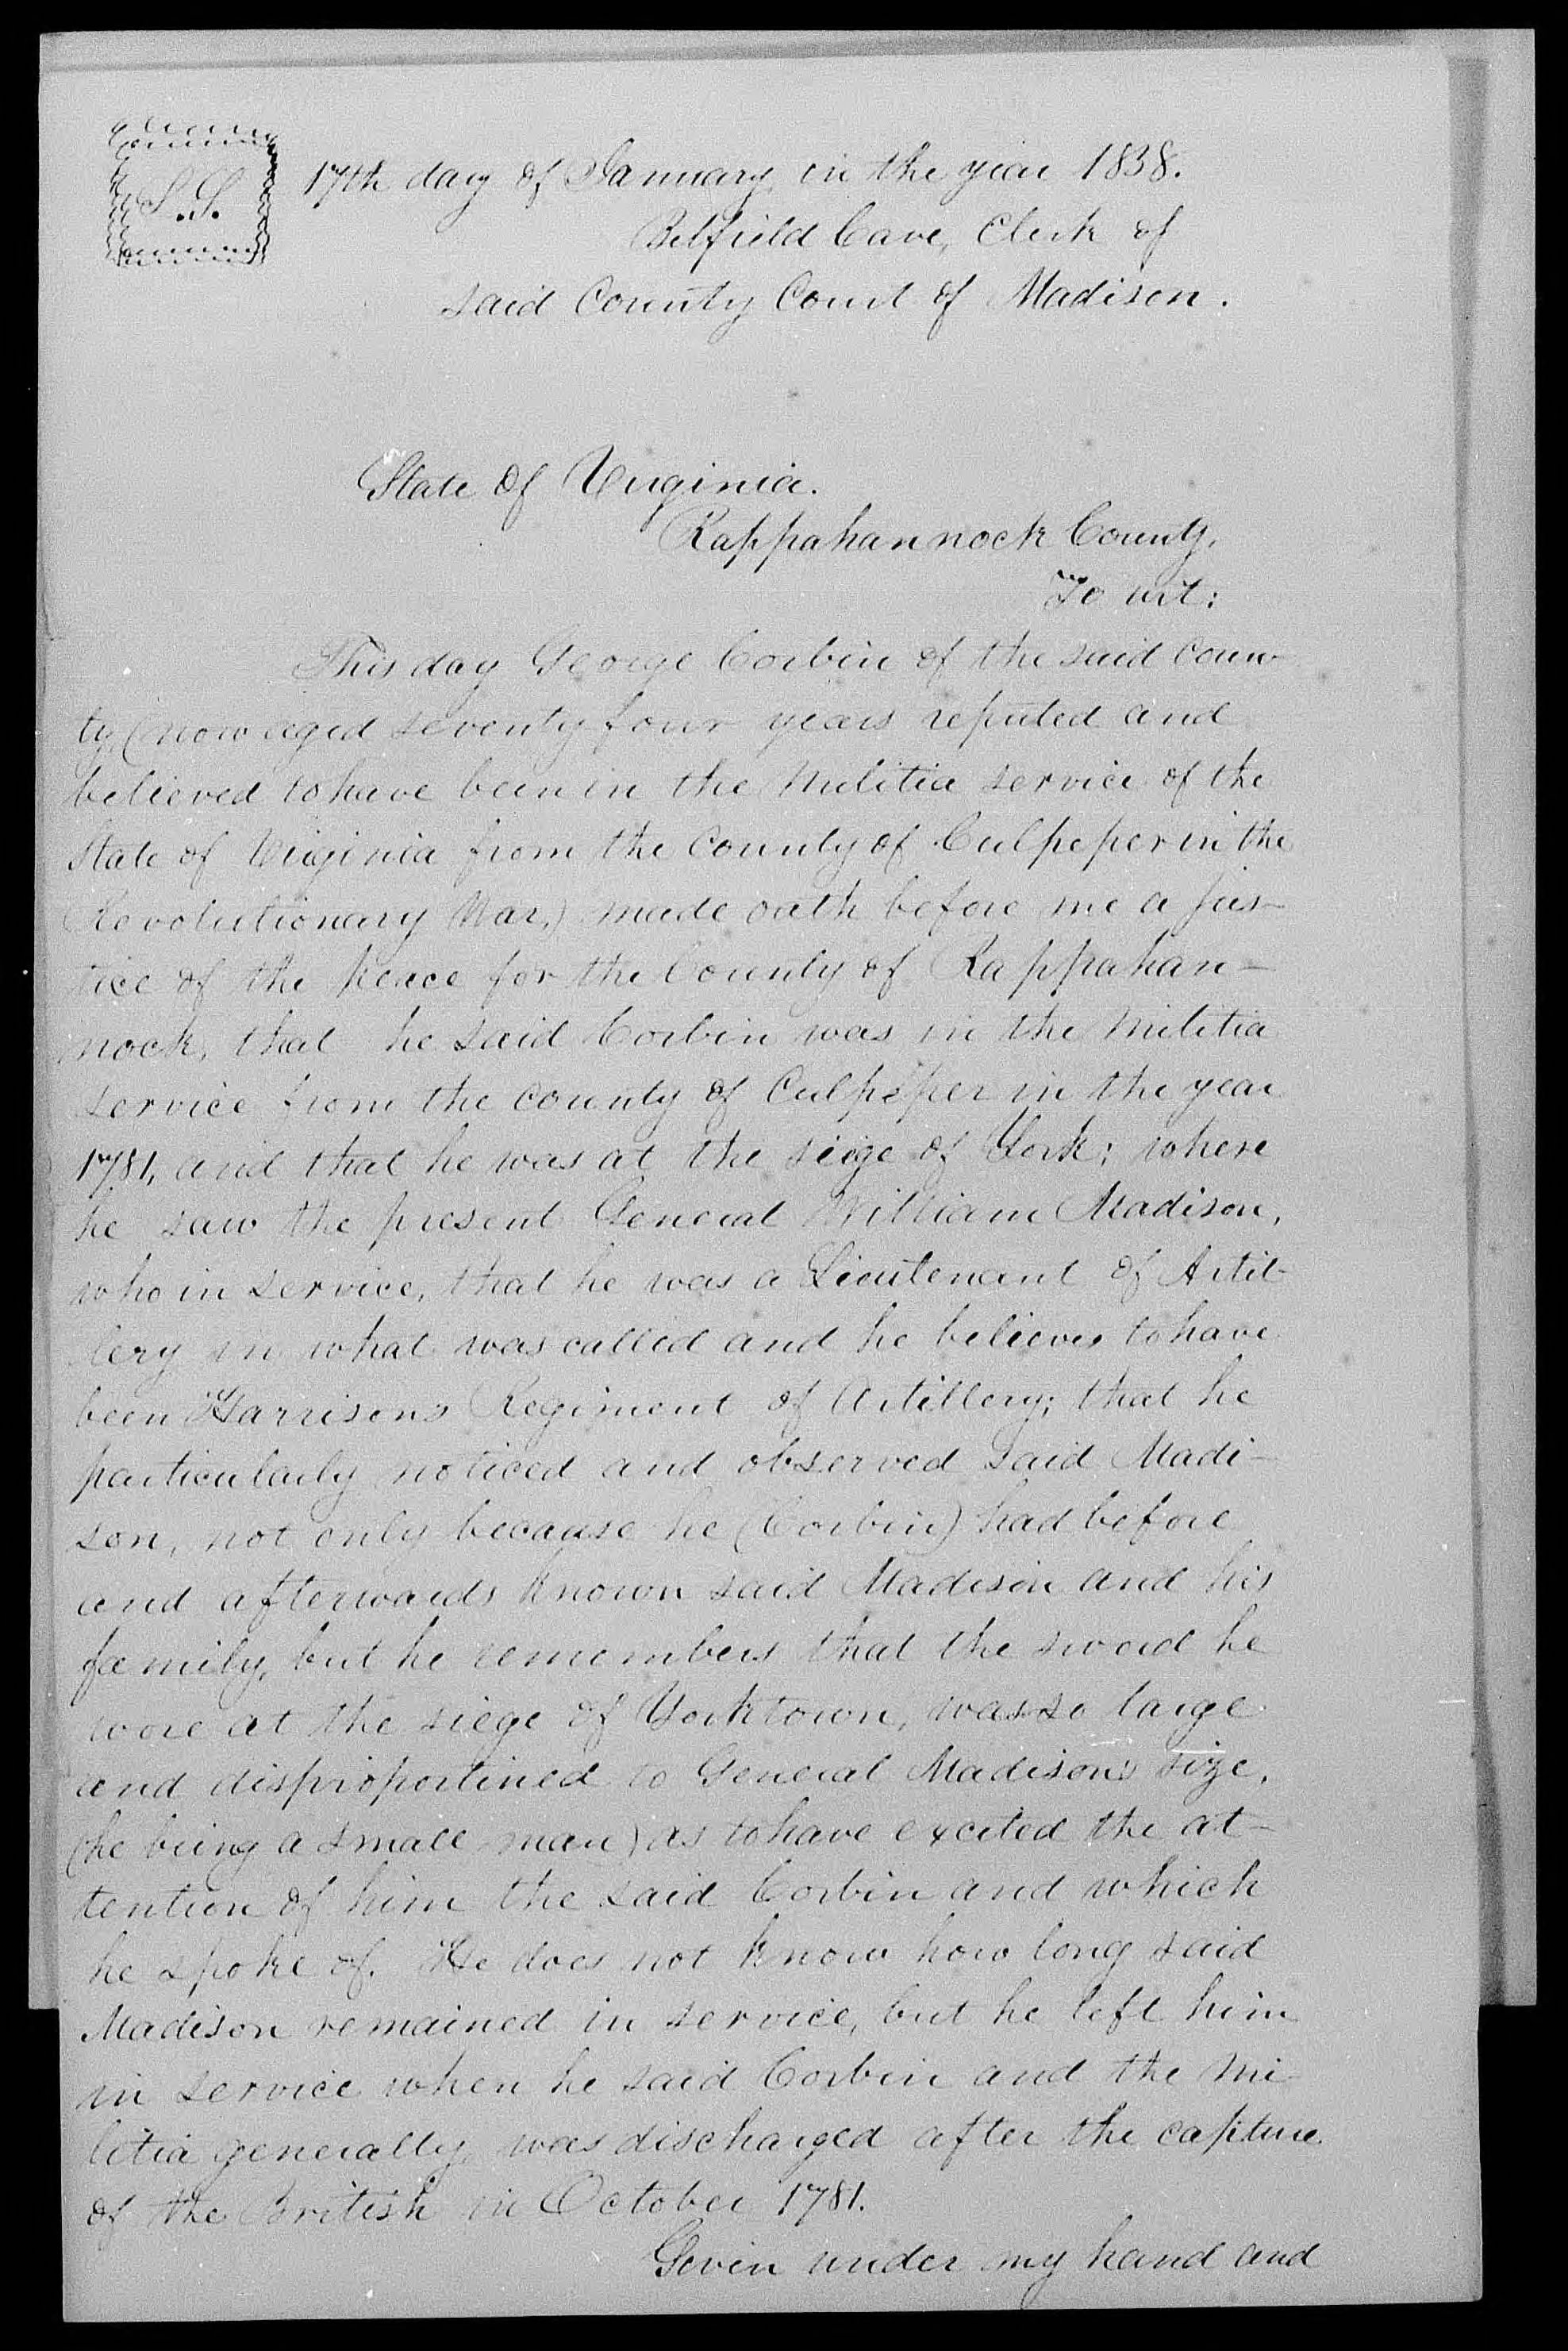 L.S.
17th day of January in the year 1838.
Belfield Cave, Clerk of
said County Court of Madison.
State of Virginia.
Rappahannock County,
To wit:
This day George Corbin of the said coun-
ty, (now aged seventy four years reputed and
believed to have been in the Militia service of the
State of Virginia from the County of Culpeper in the
Revolutionary War,) made oath before me a jus-
tice of the peace for the County of Rappahan-
nock, that he said Corbin was in the Militia
service from the county of Culpeper in the year
1781, and that he was at the seige of York; where
he saw the present General William Madison,
who in service, that he was a Lieutenant of Artil-
lery in what was called and he believes to have
been Harrison's Regiment of Artillery; that he
particularly noticed and observed said Madi-
son, not only because he (Corbin) had before
and afterwards known said Madison and his
family, but he remembers that the sword he
wore at the siege of Yorktown, was so large
and disproportined to General Madison's size,
(he being a small man) as to have excited the at-
tention of him the said Corbin and which
he spoke of. He does not know how long said
Madison remained in service, but he left him
in service when he said Corbin and the mi-
litia generally, was discharged after the capture
of the British in October 1781.
Given under my hand and